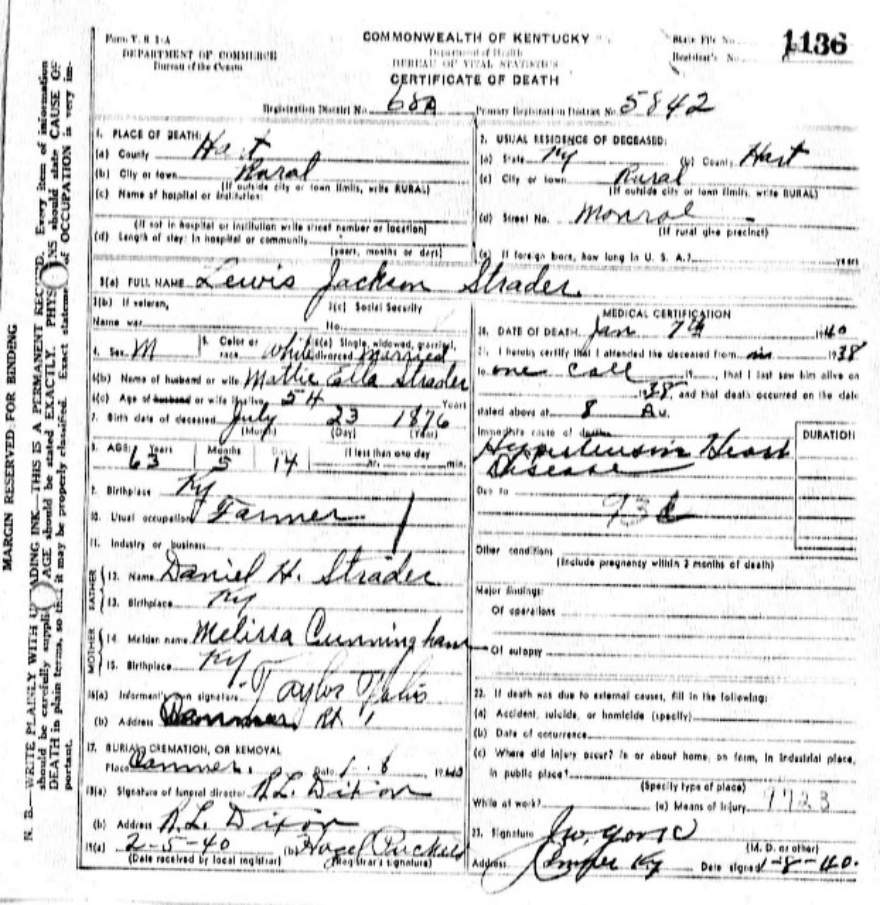 Form V. S. 1-A
DEPARTMENT OF COMMERCE
Bureau of the Census
COMMONWEALTH OF KENTUCKY
Department of Health
BUREAU OF VITAL STATISTICS
CERTIFICATE OF DEATH
State File No. 1136
Registrar's No.
Registration District No. 68A Primary Registration District No. 5842
1. PLACE OF DEATH:
(a) County Hart
(b) City or town Rural
(If outside city or town limits, write RURAL)
(c) Name of hospital or institution:
(If not in hospital or institution write street number or location)
(d) Length of stay: In hospital or community
(years, months or days)
2. USUAL RESIDENCE OF DECEASED:
(a) State Ky (b) County Hart
(c) City or town Rural
(If outside city or town limits, write RURAL)
(d) Street No. Monroe
(If rural give precinct)
(e) If foreign born, how long in U. S. A.? years
3(a) FULL NAME Lewis Jackson Strader
3(b) If veteran,
Name war
3(c) Social Security
No.
4. Sex M 5. Color or race White 6(a) Single, widowed, married, divorced Married
6(b) Name of husband or wife Mattie Ella Strader
6(c) Age of husband or wife if alive 54 Years
7. Birth date of deceased July 23 1876
(Month) (Day) (Year)
8. AGE: Years Months Days If less than one day
63 5 14 hr. min.
9. Birthplace Ky
10. Usual occupation Farmer
11. Industry or business
FATHER
12. Name Daniel H. Strader
13. Birthplace Ky
MOTHER
14. Maiden name Melissa Cunningham
15. Birthplace Ky
16(a) Informant's own signature Taylor
(b) Address Rt 1
17. BURIAL, CREMATION, OR REMOVAL
Place Cammer Date 1-8, 1940
18(a) Signature of funeral director R.L. Dixon
(b) Address R.L. Dixon
19(a) 2-5-40 (b) Hazel
(Date received by local registrar) (Registrar's signature)
MEDICAL CERTIFICATION
20. DATE OF DEATH Jan 7th 1940
21. I hereby certify that I attended the deceased from in 1938
to one call 19, that I last saw him alive on
1938, and that death occurred on the date
stated above at 8 A.
Immediate cause of death
DURATION
Hypertension Heart
Disease
Due to
93d
Other conditions
(Include pregnancy within 3 months of death)
Major findings:
Of operations
Of autopsy
22. If death was due to external causes, fill in the following:
(a) Accident, suicide, or homicide (specify)
(b) Date of occurrence
(c) Where did injury occur? In or about home, on farm, in industrial place,
in public place?
(Specify type of place)
While at work? (e) Means of injury 9723
23. Signature
(M. D. or other)
Address Ky Date signed 1-8-40.
MARGIN RESERVED FOR BINDING
N. B.—WRITE PLAINLY WITH UNFADING INK—THIS IS A PERMANENT RECORD. Every item of information
should be carefully supplied. AGE should be stated EXACTLY. PHYSICIANS should state CAUSE OF
DEATH in plain terms, so that it may be properly classified. Exact statement of OCCUPATION is very im-
portant.